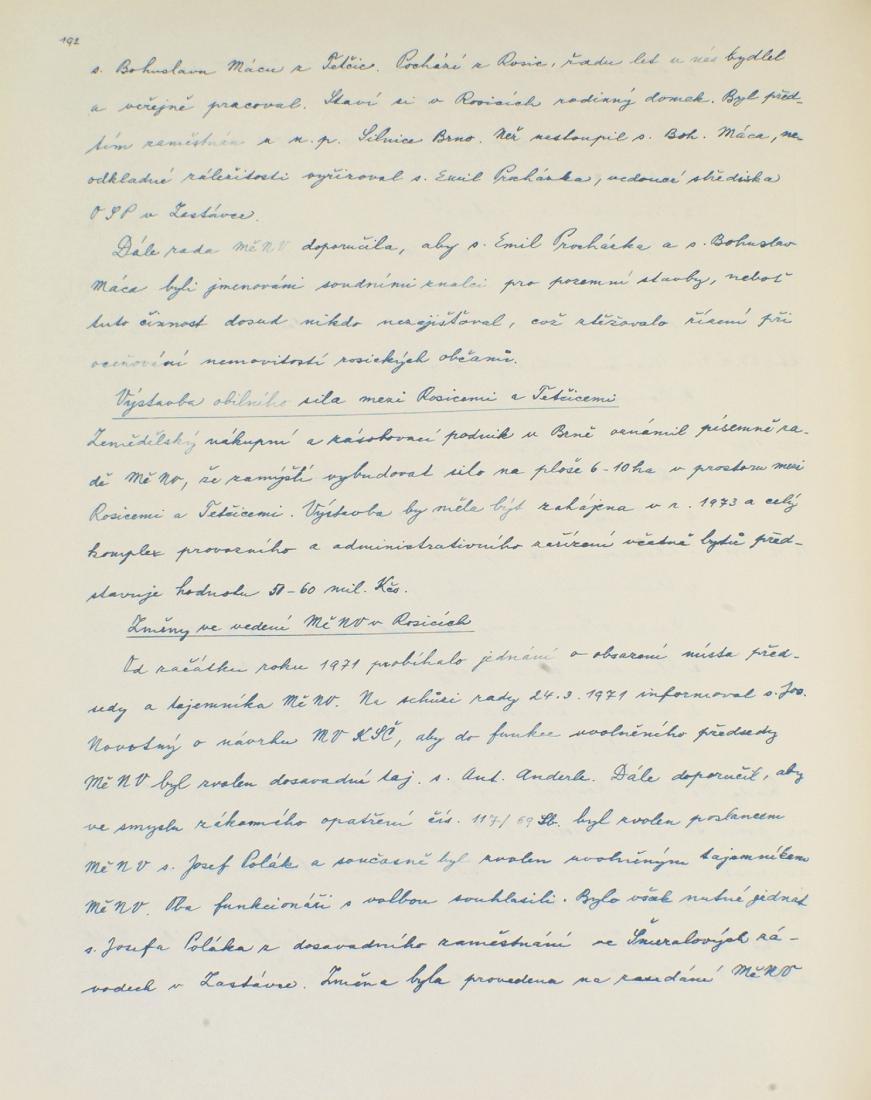 192
s. Bohuslavu Mácu z Tetčic. Pochází z Rosic, řadu let u nás bydlel
a veřejně pracoval. Staví si v Rosicích rodinný domek. Byl před-
tím zaměstnán u n. p. Silnice Brno. Než nastoupil s. Boh. Máca, ne-
odkladné záležitosti vyřizoval s. Emil Procházka, vedoucí střediska
OSP v Zastávce.
Dále rada MěNV doporučila, aby s. Emil Procházka a s. Bohuslav
Máca byli jmenováni soudními znalci pro pozemní stavby, neboť
tuto činnost dosud nikdo nezajišťoval, což ztěžovalo řízení při
oceňování nemovitostí rosických občanů.
Výstavba obilního sila mezi Rosicemi a Tetčicemi
Zemědělský nákupní a zásobovací podnik v Brně oznámil písemně ra-
dě MěNV, že zamýšlí vybudovat silo na ploše 6-10 ha v prostoru mezi
Rosicemi a Tetčicemi. Výstavba by měla být zahájena v r. 1973 a celý
komplex provozního a administrativního zařízení včetně bytů před-
stavuje hodnotu 50-60 mil. Kčs.
Změny ve vedení MěNV v Rosicích
Od začátku roku 1971 probíhalo jednání o obsazení místa před-
sedy a tajemníka MěNV. Na schůzi rady 24.3.1971 informoval s. Jos.
Novotný o návrhu MV KSČ, aby do funkce uvolněného předsedy
MěNV byl zvolen dosavadní taj. s. Ant. Anderle. Dále doporučil, aby
ve smyslu zákonného opatření čís. 117/69 Sb. byl zvolen poslancem
MěNV s. Josef Polák a současně byl zvolen uvolněným tajemníkem
MěNV. Oba funkcionáři s volbou souhlasili. Bylo však nutné jednat
s. Josefa Poláka z dosavadního zaměstnání ve Šmeralových zá-
vodech v Zastávce. Změna byla provedena na zasedání MěNV